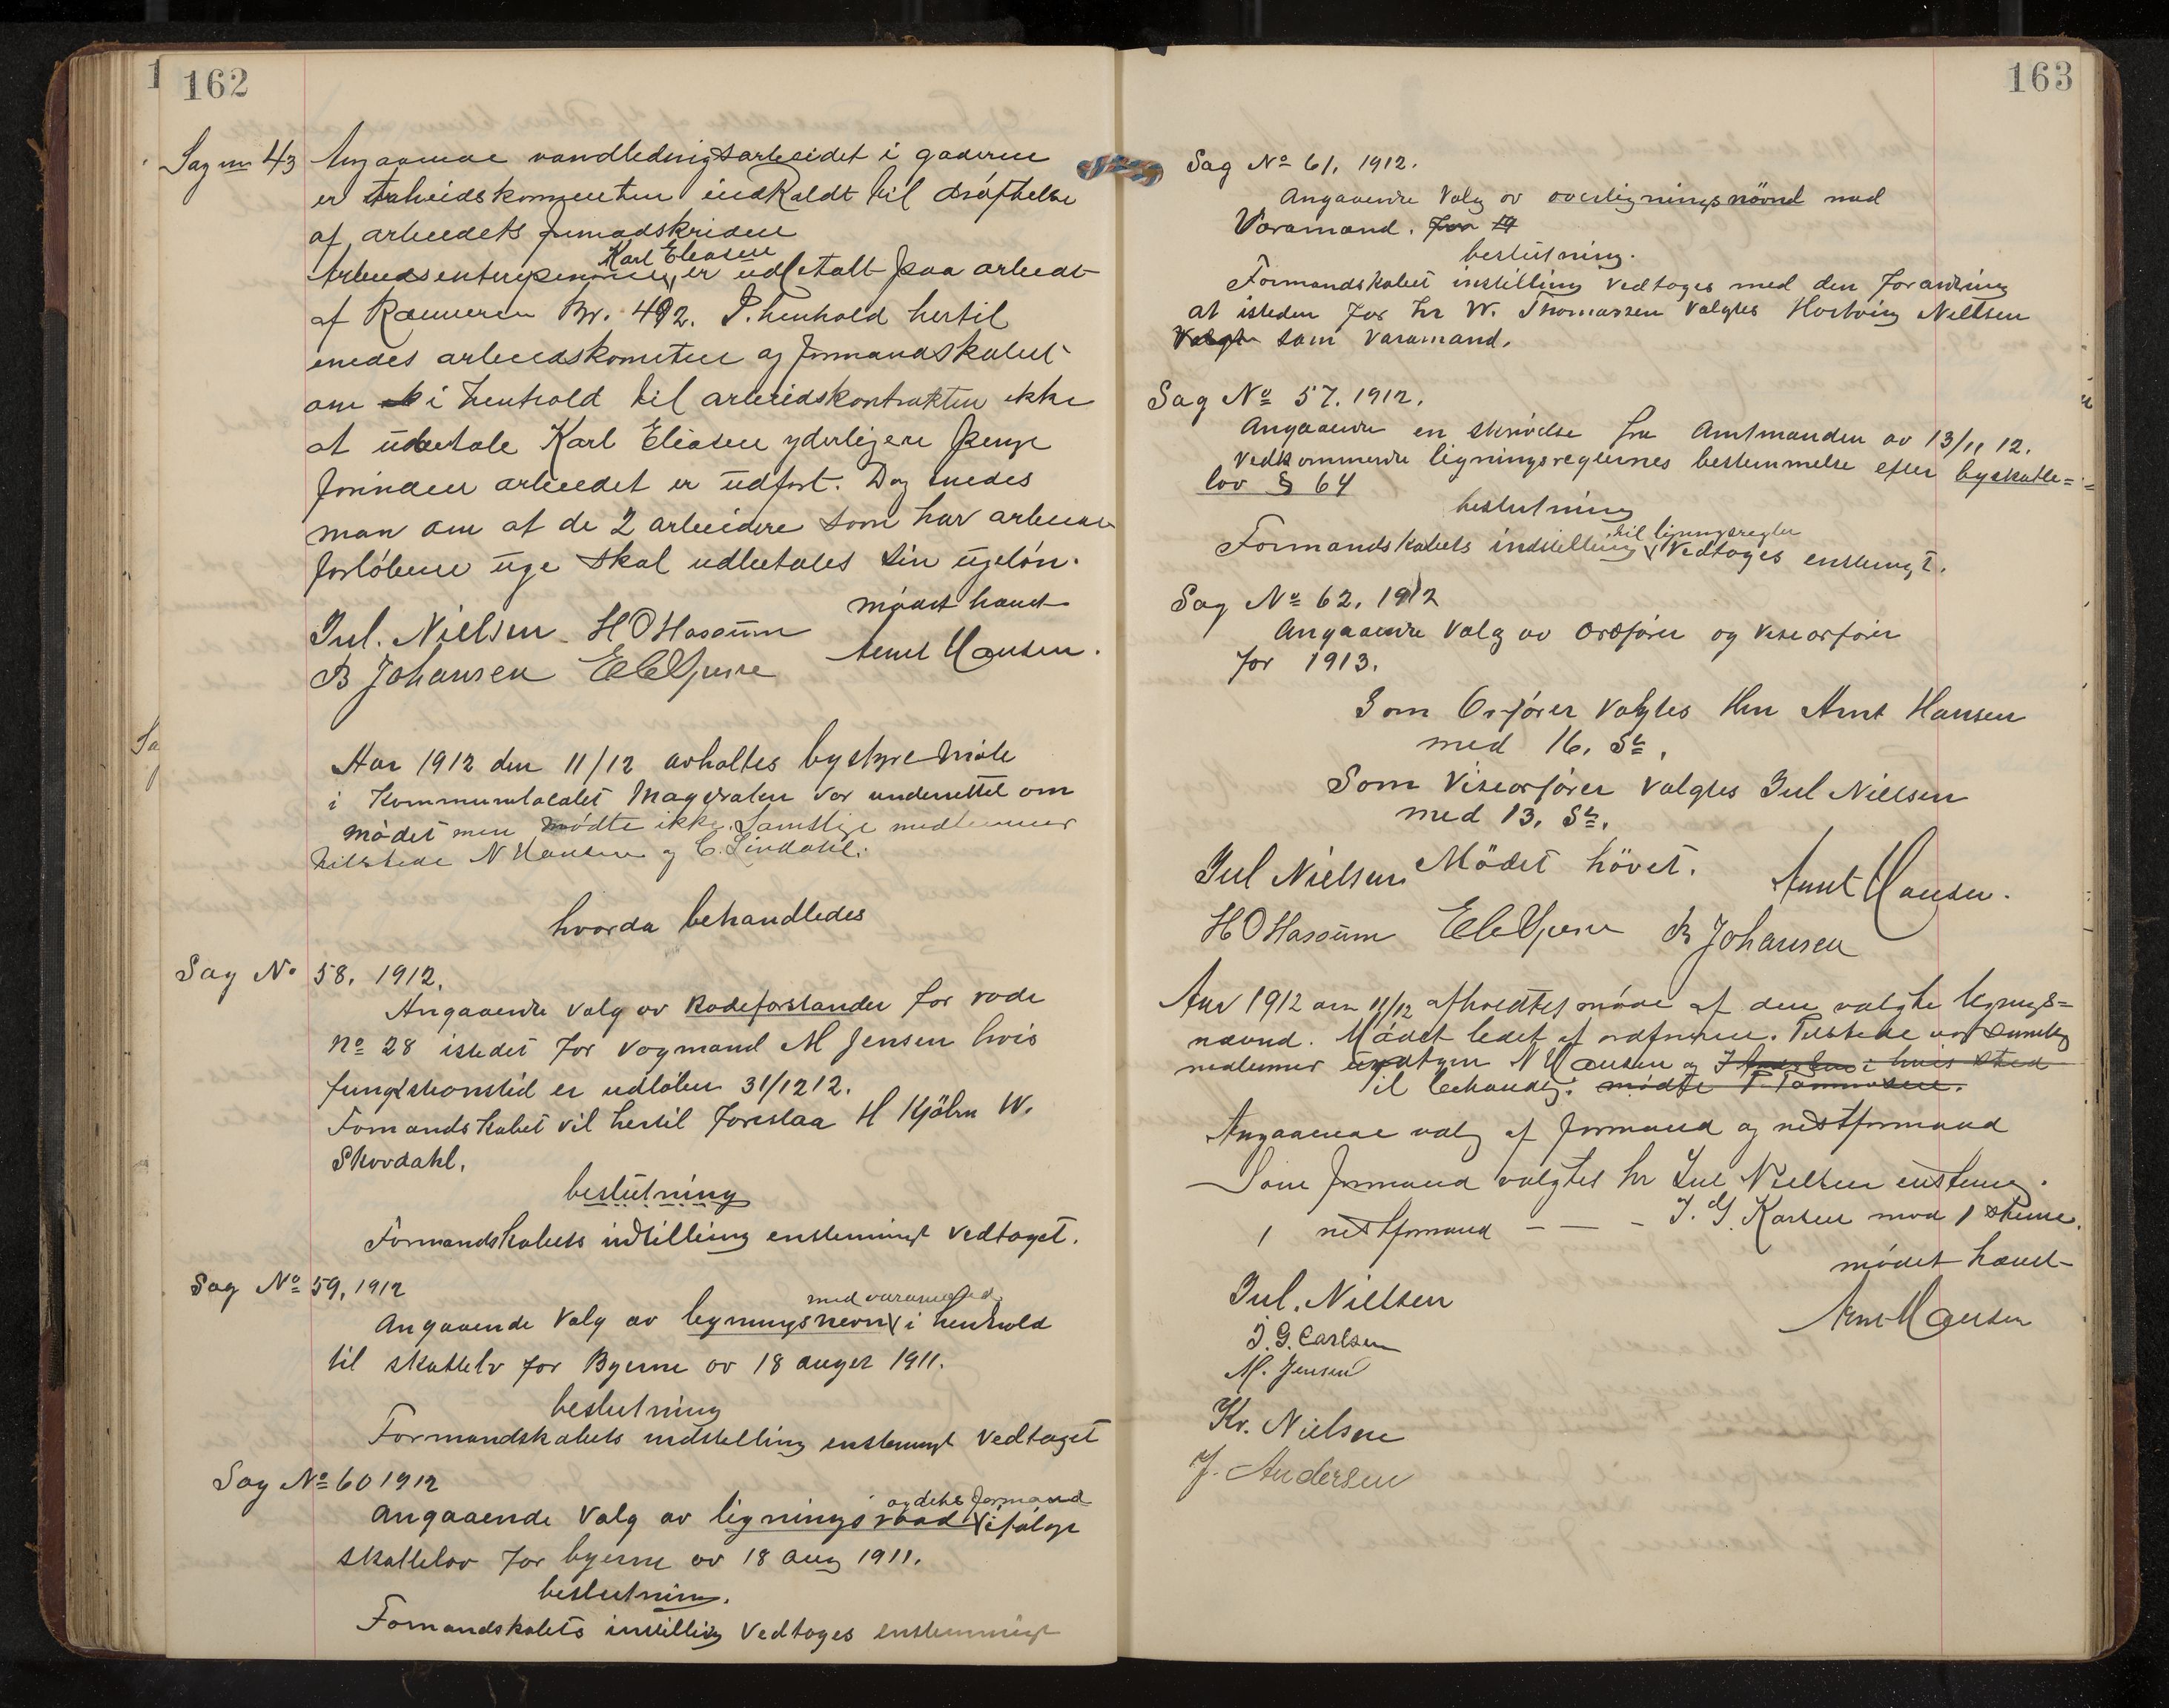 162
Sag nr 43 Angaaende vandledningsarbeidet i gaderne
er Arbeidskomiteen indkaldt til drøftelse
af arbeidets fremadskriden
Karl Eliasen
Arbeidsenterpenøren er udbetalt paa arbeidet
af Kæmneren Kr. 492. I henhold hertil
enedes arbeidskomiteen og formandskabet
om i henhold til arbeidskontrakten ikke
at udbetale Karl Eliasen yderligere penge
forinden arbeidet er udført. Dog enedes
man om at de 2 arbeidere som har arbeidet
forløbne uge skal udbetales sin ugeløn.
mødet hævet
Jul. Nielsen H O Hassum
Arnt Hansen.
B Johansen
Aar 1912 den 11/12 avholtes bystyremøte
i Kommunelocalet Magistraten var underrettet om
mødet men mødte ikke. Samtlige medlemmer
tilstede N Hansen og C. Lindahl.
hvorda behandledes
Sag No 58, 1912.
Angaaende Valg av Rodeforstander for rode
No 28 istedet for Vogmand M Jensen hvis
fungtstionstid er udløben 31/12 12.
Formandskabet vil hertil foreslaa H Kjölm W.
Skovdahl.
beslutning
Formandskabets indstilling enstemmigt vedtaget.
Sag No 59, 1912
med varamænd
Angaaende Valg av ligningsnevn i henhold
til skattelv for Byerne av 18 august 1911.
beslutning
Formandskabets indstelling enstemigt Vedtaget
Sag No 60 1912
og dets formand
Angaaende Valg av ligningsraad ifølge
skattelov for byerne av 18 aug 1911.
beslutning.
Formandskabets instilling Vedtages enstemmigt
163
Sag No 61, 1912.
Angaaende Valg av overligningsnövnd med
Varamænd.
beslutning.
Formandskabet instilling vedtages med den forandring
at isteden for Hr W. Thomassen Valgtes Hartvig Nielsen
Valgt som Varamand.
Sag No 57. 1912.
Angaaende en skrivelse fra Amtmanden av 13/11 12.
Vedkommende ligningsreglernes bestemmelse efter byskatte=
lov § 64
beslutning
til ligningsregler
Formandskabets indstilling Vedtages enstemigt.
Sag No 62. 1912
Angaaende Valg av Ordfører og Viseorfører
for 1913.
Som Orfører Valgtes Hrr Arnt Hansen
med 16. St.
Som Viseorfører Valgtes Jul Nielsen
med 13. St.
Jul Nielsen Mödet hövet. Arnt Hansen.
H O Hassum B Johansen
Aar 1912 den 11/12 afholdtes møde af den valgte lignings=
nævnd. Mødet ledet af ordføreren. Tilstede var samtlig
medlemmer undtagen N Hansen og J Andersen i hvis sted
Til behandlg: mødte T Tommasen.
Angaaende valg af formand og næstformand
Som formand valgtes hr Jul Nielsen enstemig.
næstformand — — — J. G. Karlsen mod 1 stemme.
mødet hævet
Jul. Nielsen
Arnt Hansen
J. G. Carlsen
M. Jensen
Kr. Nielsen
J. Andersen